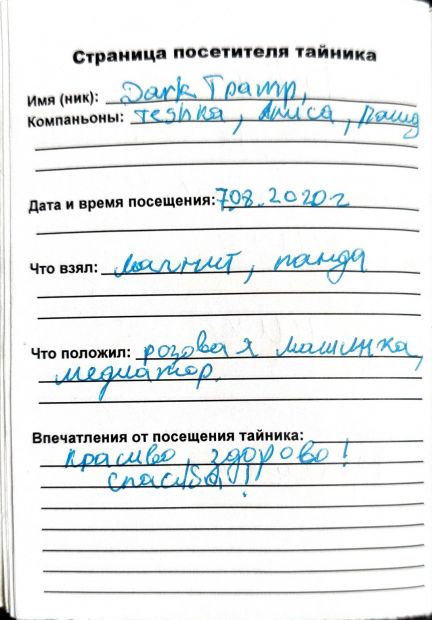 Страница посетителя тайника
Имя (ник): Dark Tramp,
Компаньоны: Teshka, Алиса,
Дата и время посещения: 7.08.2020г
Что взял: магнит, панда
Что положил: розовая машинка,
медиатор.
Впечатления от посещения тайника:
Красиво, здорово!
Спасибо!!